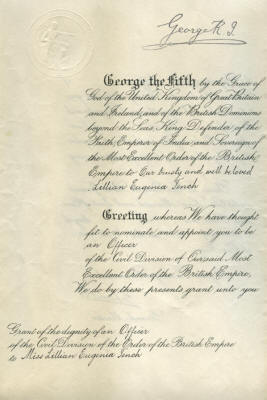 George R. I.
George the Fifth by the Grace of
God of the United Kingdom of Great Britain
and Ireland, and of the British Dominions
beyond the Seas, King, Defender of the
Faith, Emperor of India and Sovereign of
the Most Excellent Order of the British
Empire to Our trusty and well beloved
Lillian Eugenia Tench
Greeting whereas We have thought
fit to nominate and appoint you to be
an Officer
of the Civil Division of Our said Most
Excellent Order of the British Empire,
We do by these presents grant unto you
Grant of the dignity of an Officer
of the Civil Division of the Order of the British Empire
to Miss Lillian Eugenia Tench